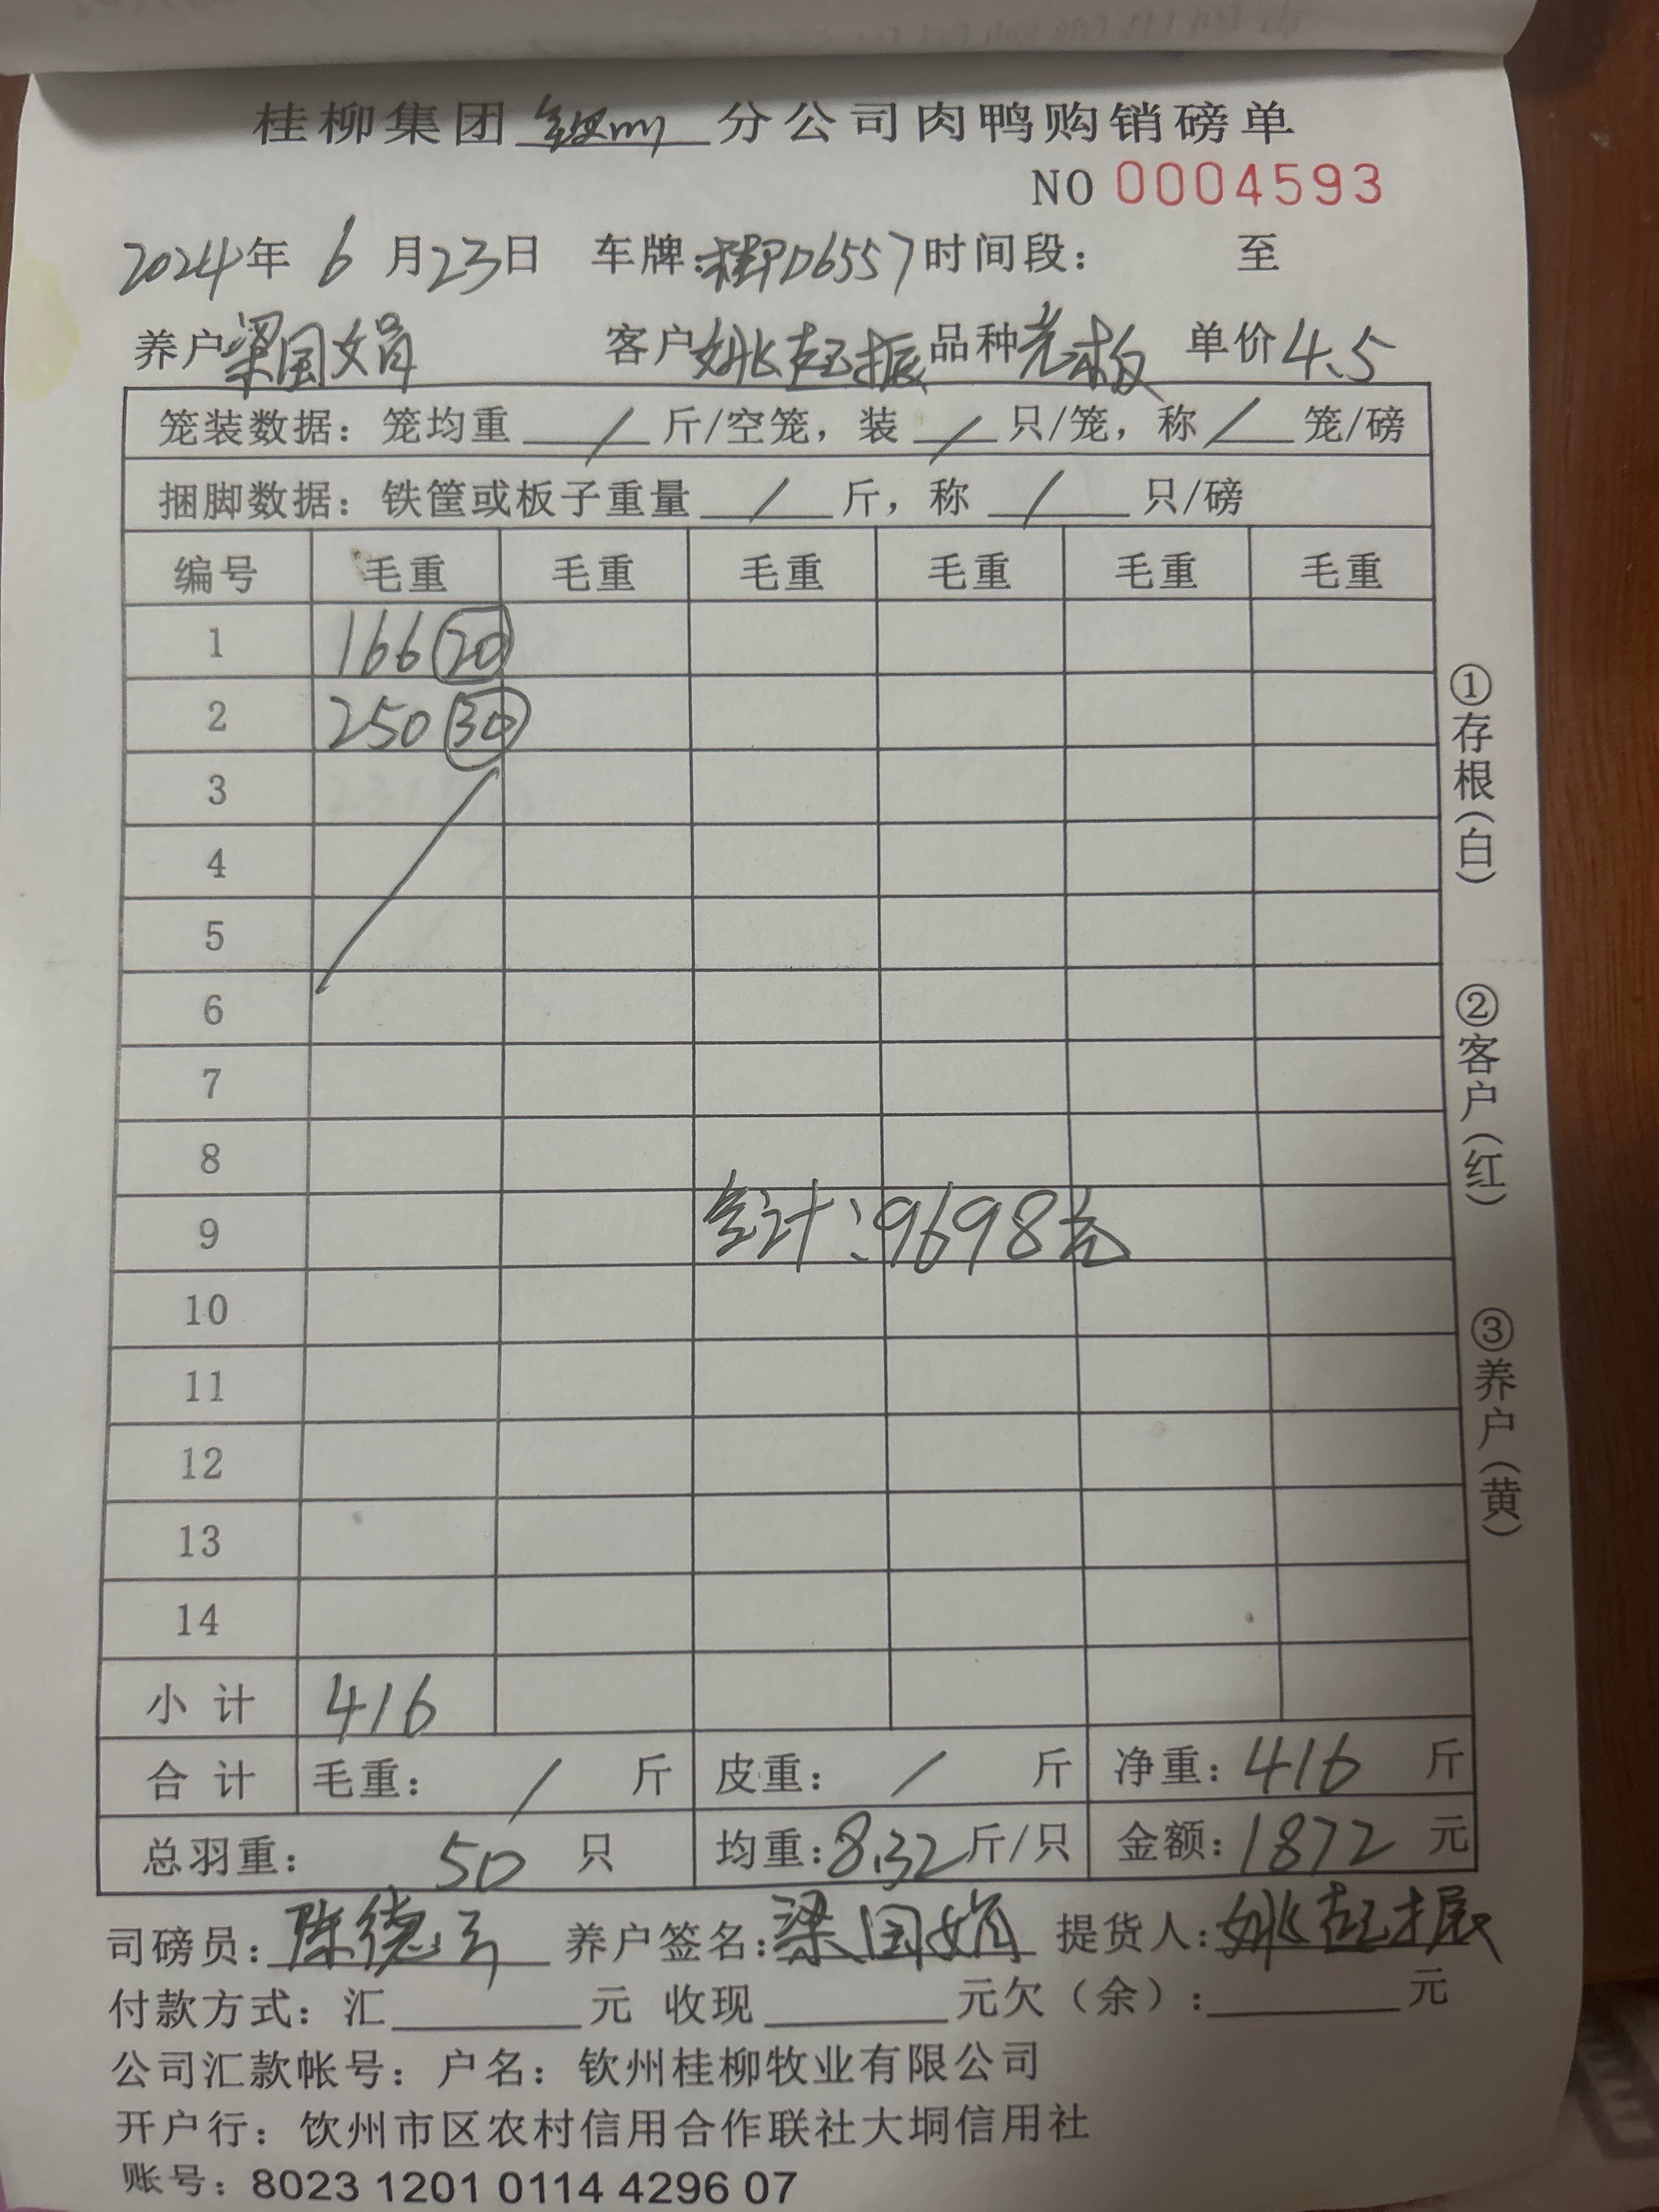 桂柳集团 钦州 分公司肉鸭购销磅单
NO 0004593
2024年 6 月23日 车牌:桂PD6557 时间段: 至
养户 梁国娟 客户 姚起振 品种 光板 单价 4.5
笼装数据: 笼均重 / 斤/空笼, 装 / 只/笼, 称 / 笼/磅
捆脚数据: 铁筐或板子重量 / 斤, 称 / 只/磅
编号 毛重 毛重 毛重 毛重 毛重 毛重
1 166 20
2 250 30
3
4
5
6
7
8
9 合计:9698元
10
11
12
13
14
小计 416
合计 毛重: / 斤 皮重: / 斤 净重: 416 斤
总羽重: 50 只 均重:8.32斤/只 金额:1872元
司磅员: 陈德 养户签名:梁国娟 提货人:姚起振
付款方式: 汇 元 收现 元欠(余): 元
公司汇款帐号: 户名: 钦州桂柳牧业有限公司
开户行: 钦州市区农村信用合作联社大垌信用社
账号: 8023 1201 0114 4296 07
①存根(白)
②客户(红)
③养户(黄)